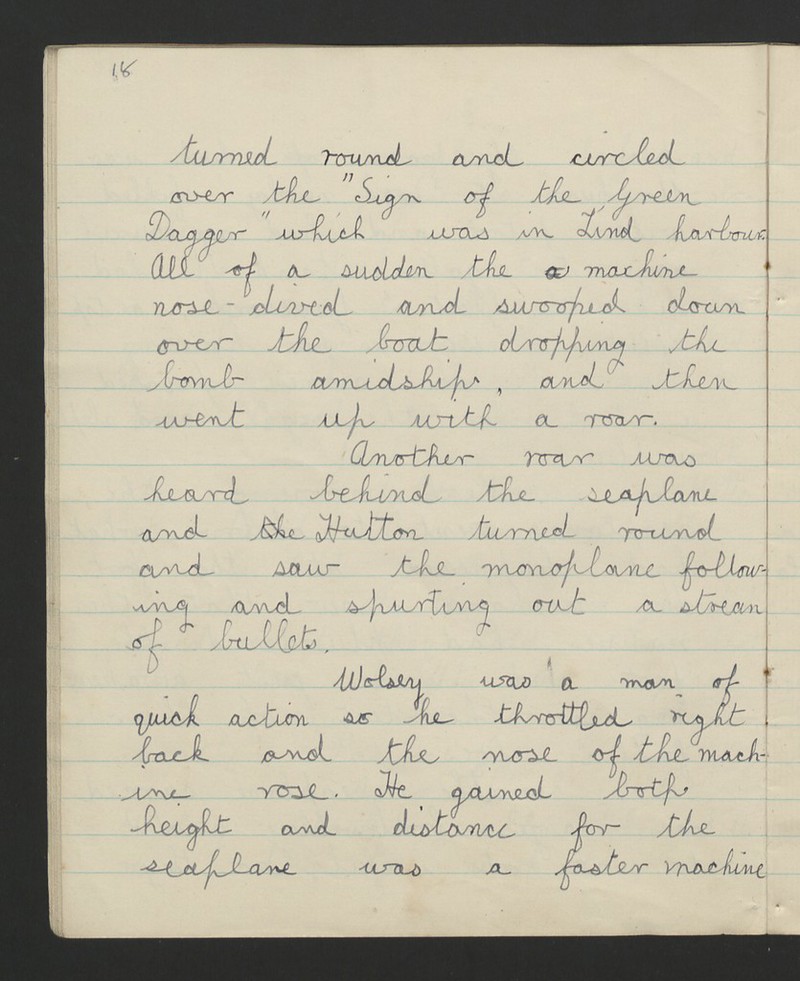 18
turned round and circled
over the "Sign of the Green
Dagger" which was in Lind harbour.
All of a sudden the a machine
nose-dived and swooped down
over the boat dropping the
bomb amidships, and then
went up with a roar.
Another roar was
heard behind the seaplane
and the Hutton turned round
and saw the monoplane follow-
ing and spurting out a stream
of bullets.
Wolsey was a man of
quick action so he throttled right
back and the nose of the mach-
ine rose. He gained both
height and distance for the
seaplane was a faster machine